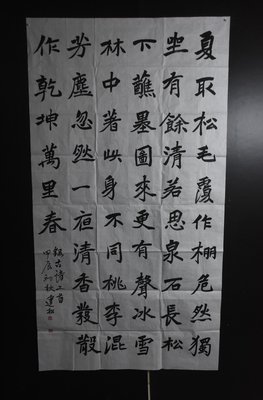 夏取松毛覆作棚危然獨
坐有餘清若思泉石長松
下蘸墨圖來更有聲冰雪
林中著此身不同桃李混
芳塵忽然一亱清香發散
作乾坤萬里春
錄古詩二首
甲辰初秋建松